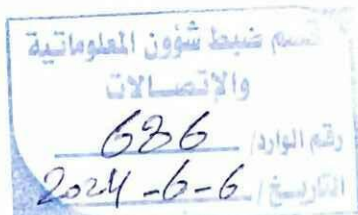 قسم ضبط شؤون المعلوماتية
والإتصالات
رقم الوارد/ 686
التاريخ/ 2024-6-6